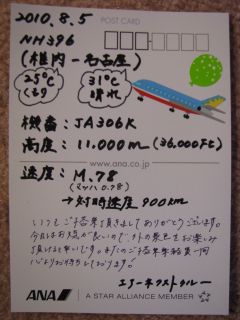 2010.8.5
POST CARD
NH396
(稚内－名古屋)
25℃ 31℃
くもり 晴れ
機番：JA306K
高度：11,000m (36,000Ft)
www.ana.co.jp
速度：M.78
(マッハ0.78)
→対時速度 900km
いつもご搭乗頂きましてありがとうございます。
今日はお天気が良いので、外の景色をお楽しみ
頂けると幸いです。またのご搭乗を乗務員一同
心よりお待ちしております。
エアーネクストクルー
ANA
A STAR ALLIANCE MEMBER